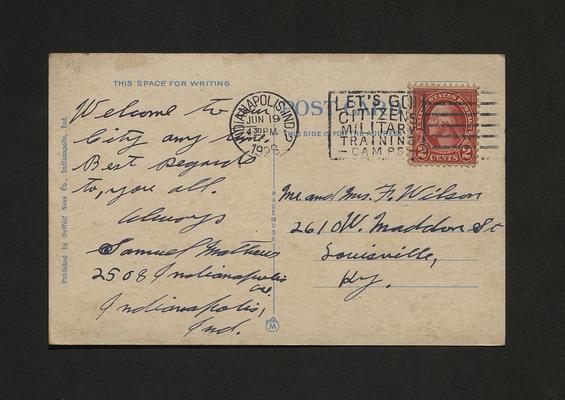 THIS SPACE FOR WRITING
Welcome to our
City any time
Best regards
to, you all.
Always
Samuel Mathews
2508 Indianapolis
ave.
Indianapolis,
Ind.
Published by DeWolf News Co., Indianapolis, Ind.
MADE IN U.S.A.
M
INDIANAPOLIS, IND.
JUN 19
430 PM
1928
POST CARD
THIS SIDE IS FOR THE ADDRESS
LET'S GO!
CITIZENS
MILITARY
TRAINING
CAMPS
UNITED STATES POSTAGE
2 CENTS 2
Mr. and Mrs. F. Wilson
2610 W. Maddon St
Louisville,
Ky.